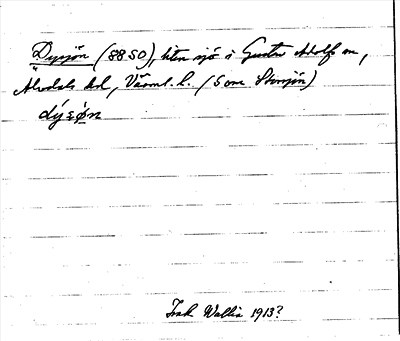 Dysjön (88 SO), liten sjö i Gustav Adolf sn,
Älvdals hd, Värml. l. (Sone Stensjön)
dýsǿn
Isak Wallin 1913?